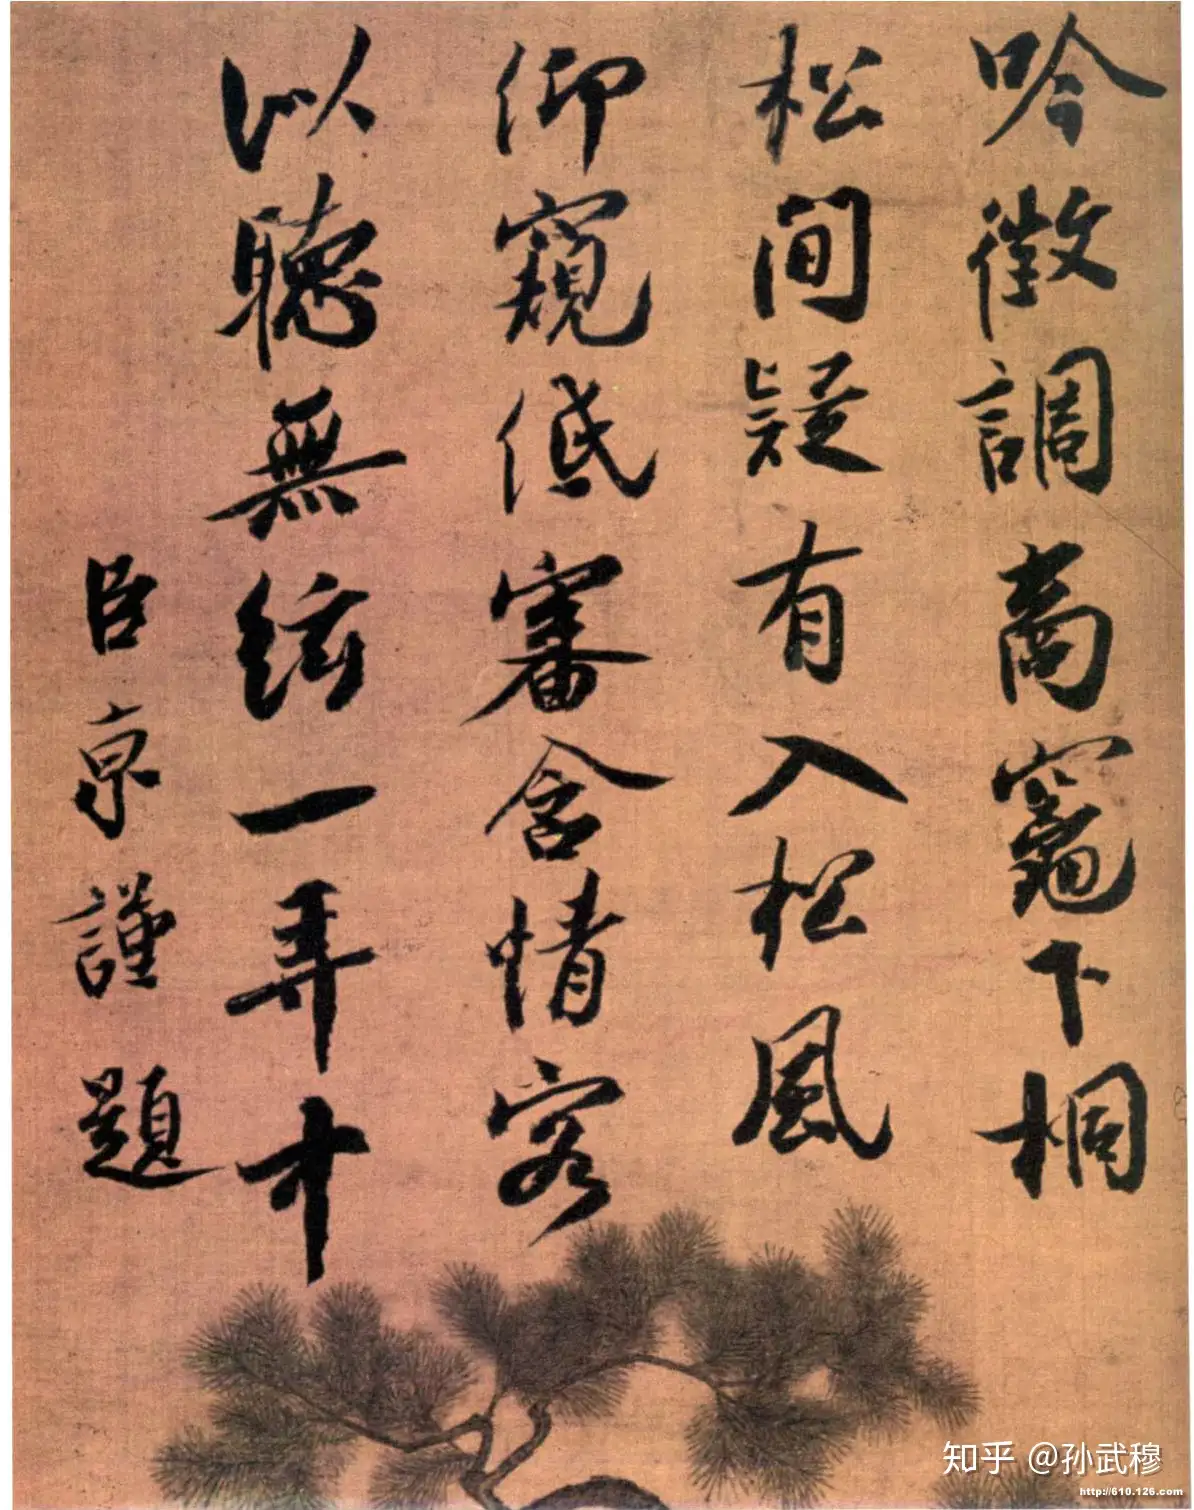 吟徵調商竈下桐
松間疑有入松風
仰窺低審含情客
以聽無絃一弄中
臣京謹題
知乎 @孙武穆
http://610.126.com